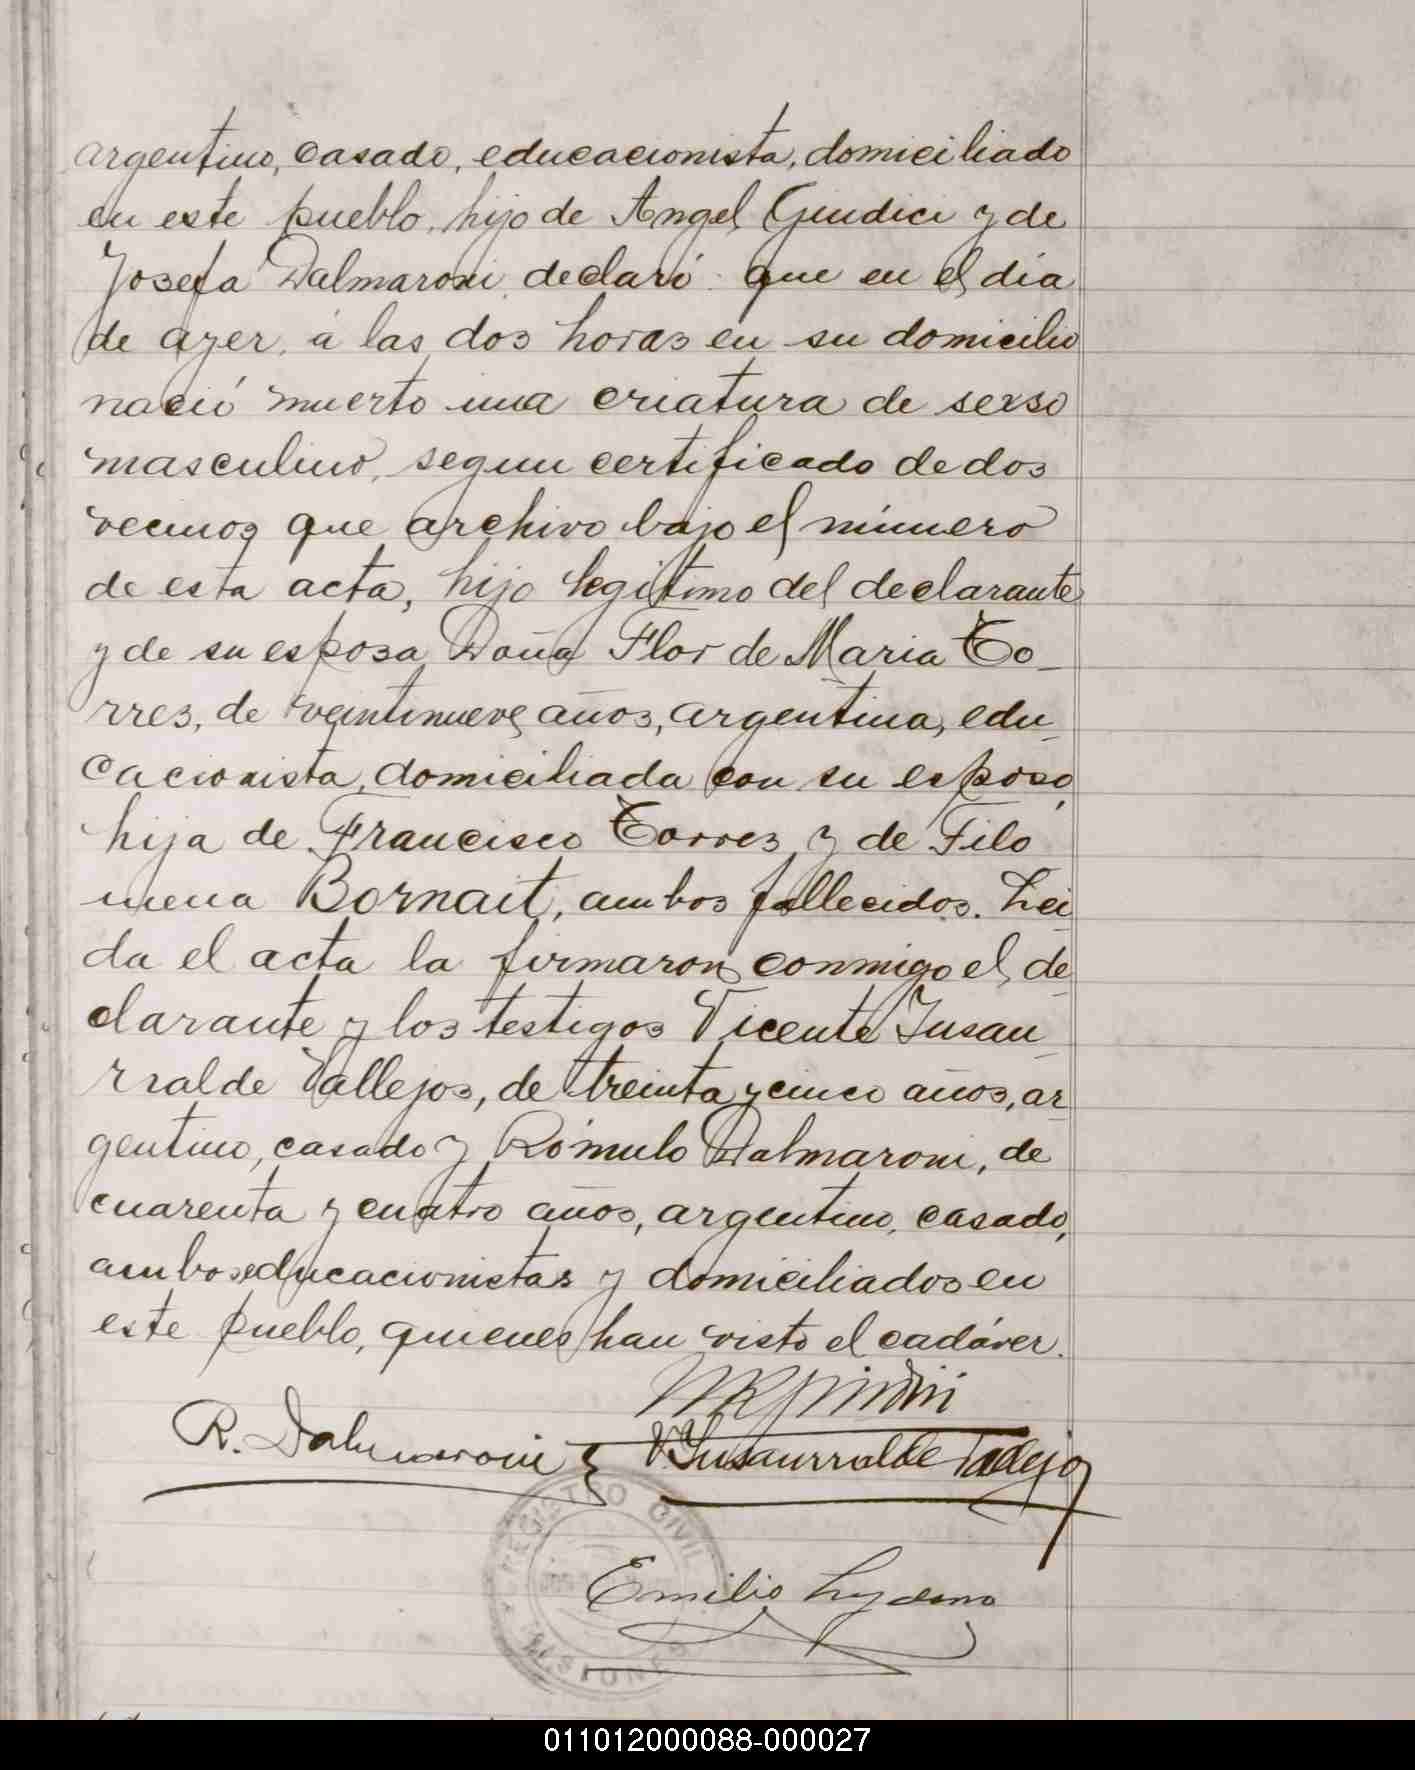 argentino, casado, educacionista, domiciliado
en este pueblo, hijo de Angel Giudici y de
Josefa Dalmaroni, declaró: que en el día
de ayer, á las dos horas en su domicilio
nació muerto una criatura de sexso
masculino, segun certificado de dos
vecinos que archivo bajo el número
de esta acta, hijo legítimo del declarante
y de su esposa Doña Flor de Maria To-
rres, de veintinueve años, argentina, edu-
cacionista, domiciliada con su esposo,
hija de Francisco Torres y de Filo
mena Bornait, ambos fallecidos. Lei
da el acta la firmaron conmigo el de
clarante y los testigos Vicente Jusau
rralde Vallejos, de treinta y cinco años, ar
gentino, casado y Rómulo Dalmaroni, de
cuarenta y cuatro años, argentino, casado,
ambos educacionistas y domiciliados en
este pueblo, quienes han visto el cadáver.
R. Dalmaroni
V Jusaurralde Vallejos
REGISTRO CIVIL
MISIONES
Emilio
011012000088-000027